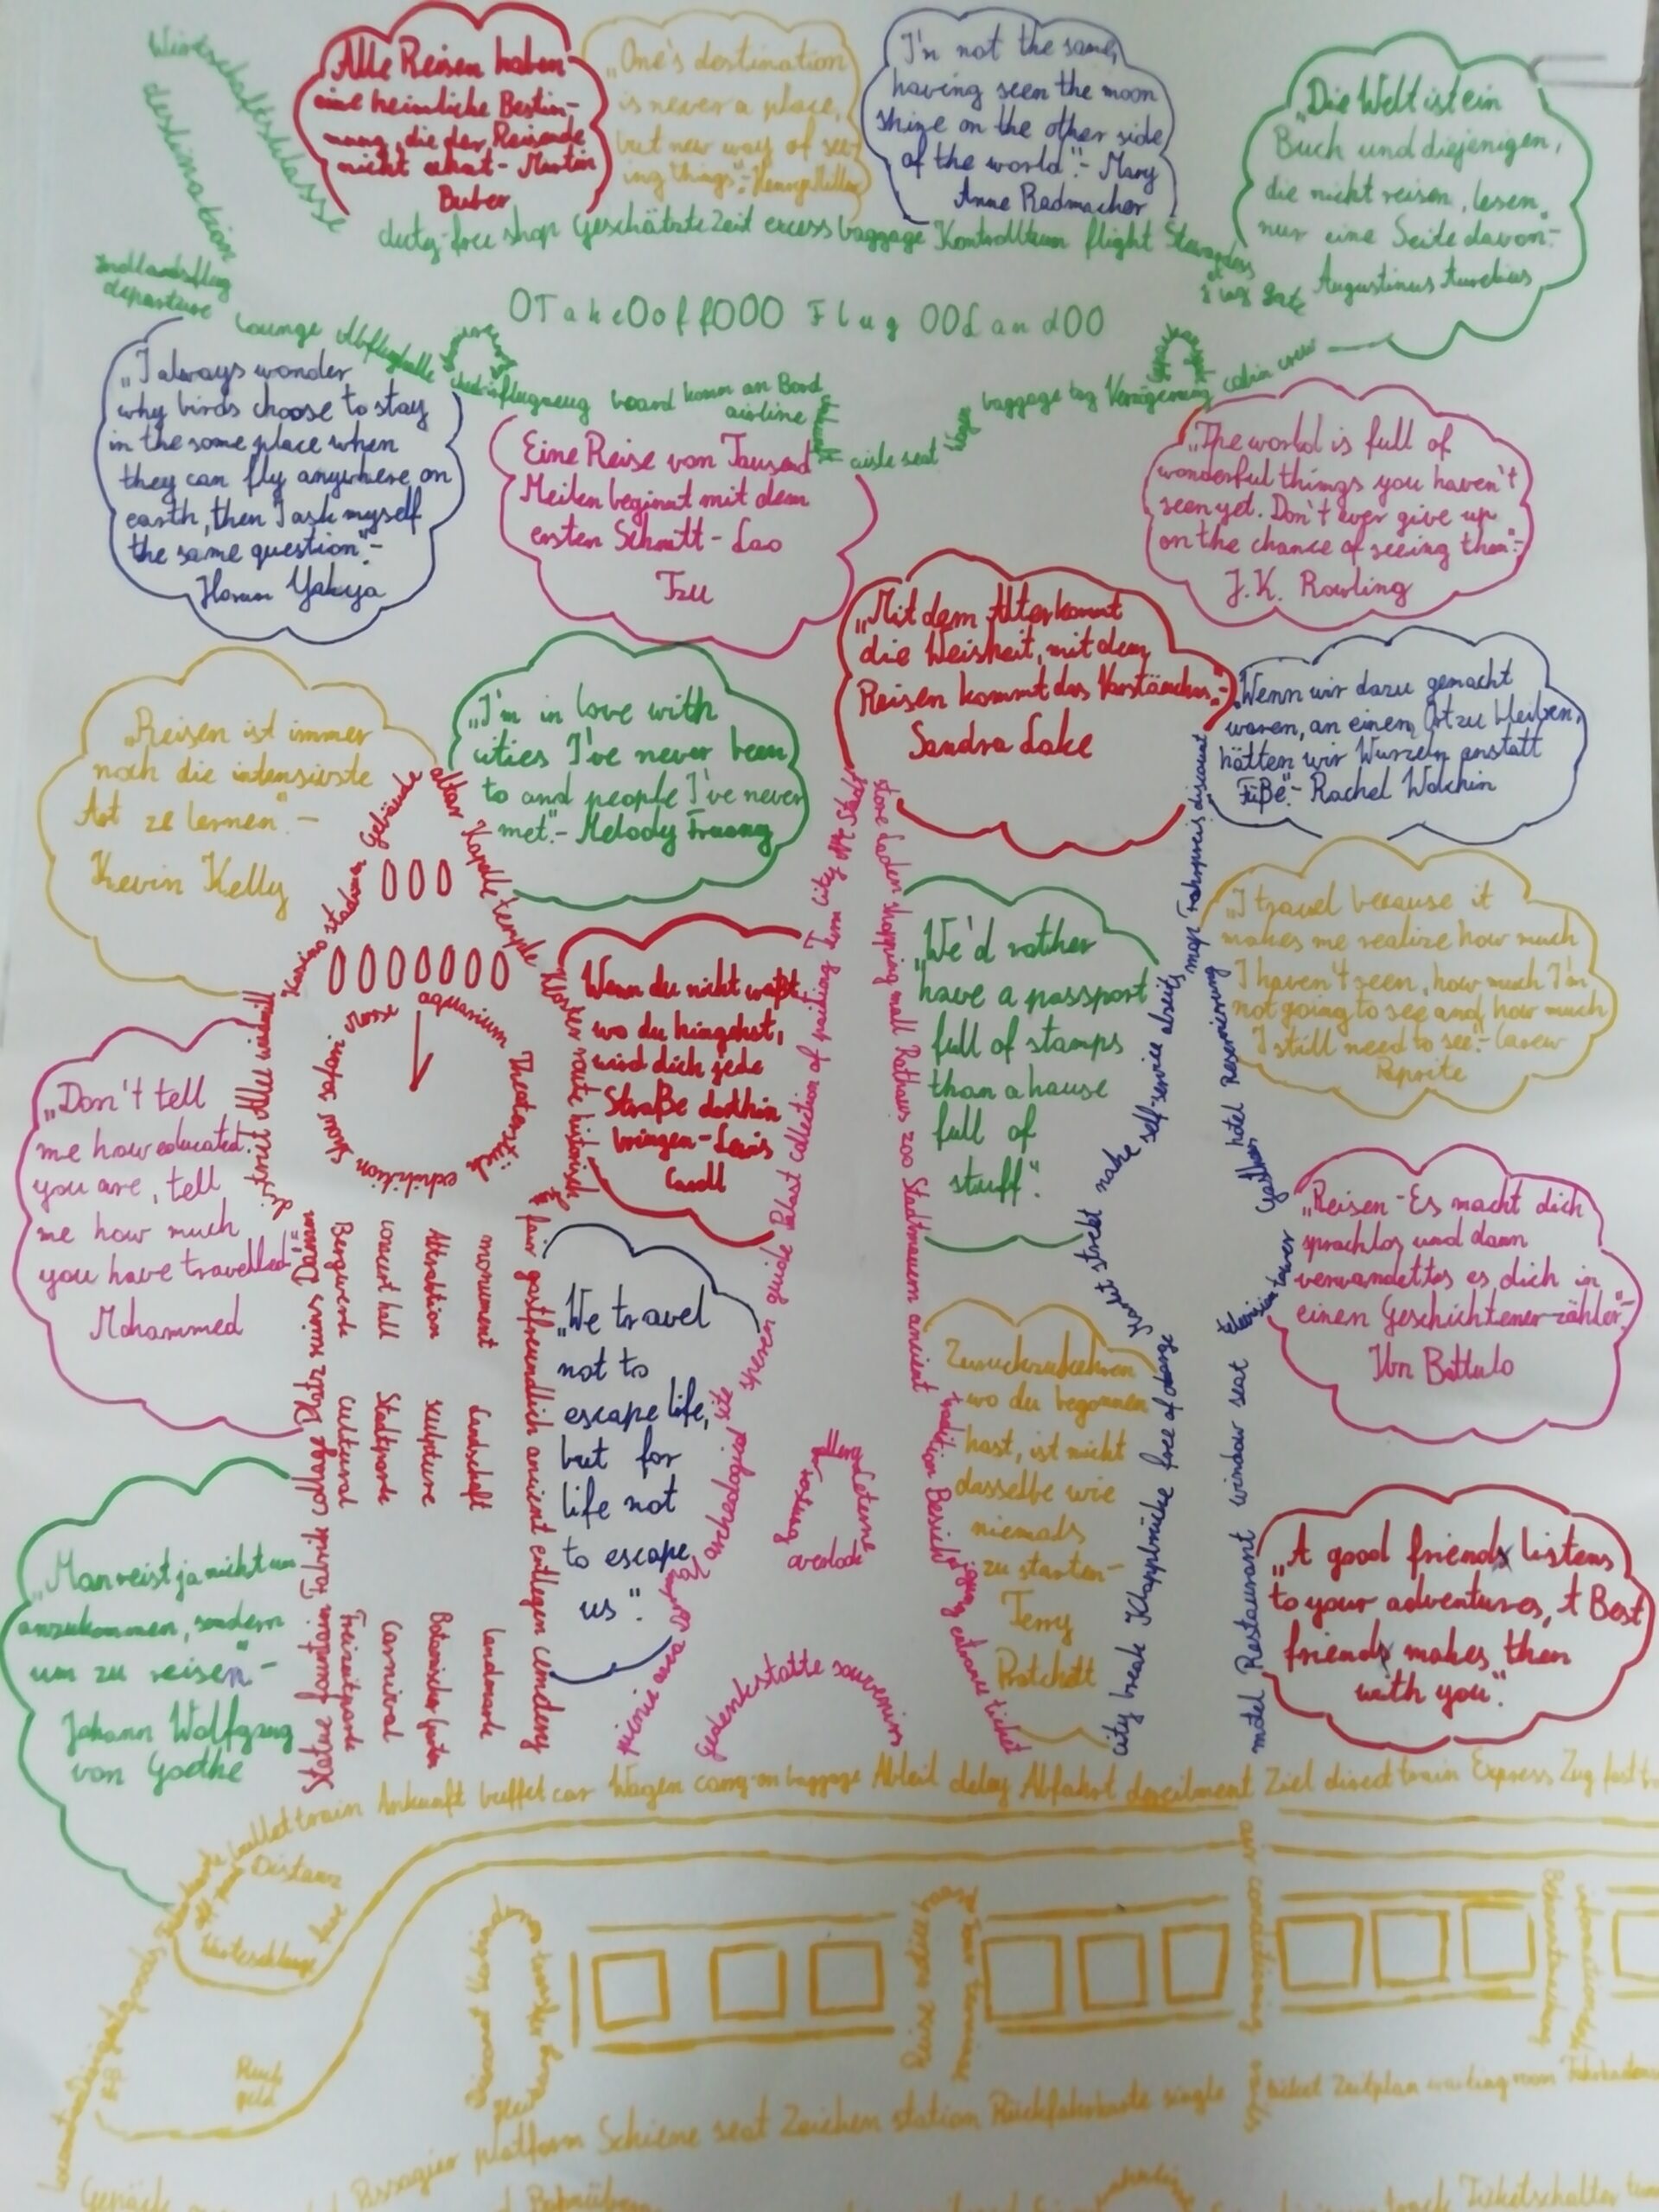 Alle Reisen haben
eine heimliche Bestim-
mung, die der Reisende
nicht ahnt - Martin
Buber
„One's destination
is never a place,
but new way of see-
ing things" - Henry Miller
I'm not the same,
having seen the moon
shine on the other side
of the world." - Mary
Anne Radmacher
„Die Welt ist ein
Buch und diejenigen,
die nicht reisen, lesen
nur eine Seite davon" -
Augustinus Aurelius
Wirtschaftsklasse
destination
Inlandsflug
departure
duty-free shop Geschätzte Zeit excess baggage Kontrollturm flight Stewardess
Lounge Abflughalle
OTakeOoffOOO Flug OOLandOO
board komm an Bord
airline
aisle seat
baggage tag Verzögerung cabin crew
„I always wonder
why birds choose to stay
in the same place when
they can fly anywhere on
earth, then I ask myself
the same question" -
Harun Yahya
Eine Reise von Tausend
Meilen beginnt mit dem
ersten Schritt - Lao
Tzu
„The world is full of
wonderful things you haven't
seen yet. Don't ever give up
on the chance of seeing them" -
J.K. Rowling
„Mit dem Alter kommt
die Weisheit, mit dem
Reisen kommt das Verständnis" -
Sandra Lake
„Wenn wir dazu gemacht
waren, an einem Ort zu bleiben,
hätten wir Wurzeln anstatt
Füße" - Rachel Wolchin
„Reisen ist immer
noch die intensivste
Art ze lernen" -
Kevin Kelly
„I'm in love with
cities I've never been
to and people I've never
met" - Melody Truong
„Wenn du nicht weißt
wo du hingehst,
wird dich jede
Straße dorthin
bringen - Lewis
Caroll
„We'd rather
have a passport
full of stamps
than a hause
full of
stuff".
„I travel because it
makes me realize how much
I haven't seen, how much I'm
not going to see and how much
I still need to see" - Carew
Papritz
„Don't tell
me how educated
you are, tell
me how much
you have travelled"
Mohammed
„We travel
not to
escape life,
but for
life not
to escape
us".
Zurückzukehren
wo du begonnen
hast, ist nicht
dasselbe wie
niemals
zu starten -
Terry
Pratchett
„Reisen - Es macht dich
sprachlos und dann
verwandelt es dich in
einen Geschichtenerzähler" -
Ibn Battuta
„Man reist ja nicht um
anzukommen, sondern
um zu reisen" -
Johann Wolfgang
von Goethe
„A good friend listens
to your adventures, A Best
friend makes them
with you".
Kasino stadium Gebäude
altar Kapelle temple
Kloster route historisch
district Allee windmill
aquarium Theaterstück exhibition show safari
Statue fountain Fabrik collage Platz ruins Damm
Bergwerke cultural Freizeitparke
concert hall Stadtparke Carnival
Attraktion sculpture Botanischer Garten
monument Landschaft landmark
fair gastfreundlich ancient entlegen cemetery
picnic area
archeological site
guide Palast collection of painting Turm city
store Laden shopping mall Rathaus zoo Stadtmauern ancient
tradition
entrance ticket
gallery
Gedenkstatte souvenirs
city break Klappbrücke free of charge
market
nahe self-service abseits map Fahrpreis discount
motel Restaurant window seat
tower
Gasthaus hotel Reservierung
bullet train Ankunft buffet car Wagen carry-on baggage Abteil delay Abfahrt derailment Ziel direct train Express Zug fast
Distanz
Warteschlange
Rück
geld
air conditioning
Passagier platform Schiene seat Zeichen station Rückfahrkarte single
ticket Zeitplan waiting room
Gepäck
track Ticketschalter